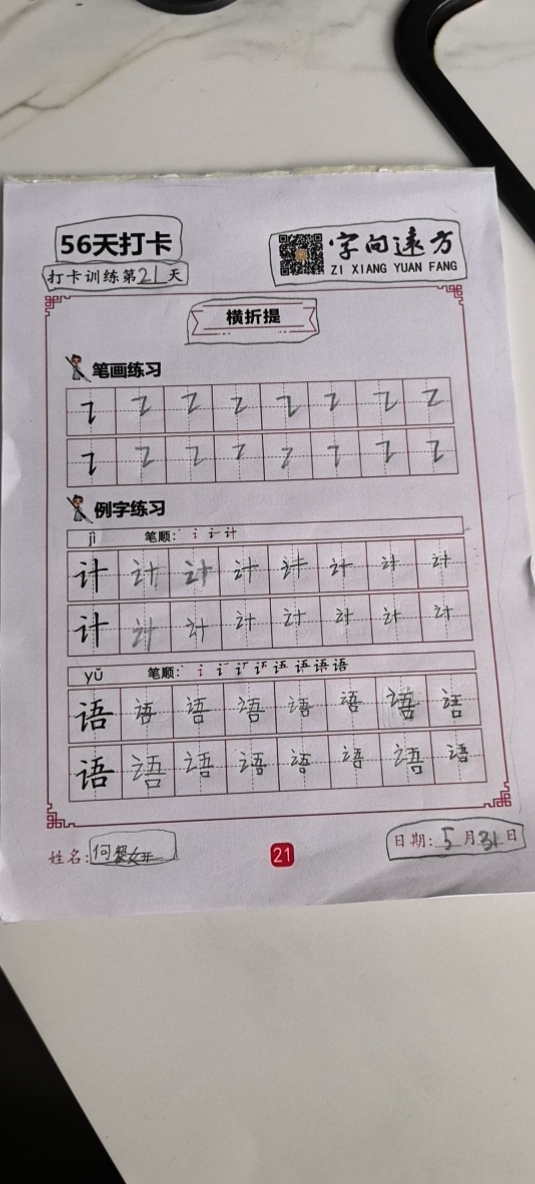 56天打卡
打卡训练第21天
字向远方
ZI XIANG YUAN FANG
横折提
笔画练习
例字练习
jì 笔顺: 计
计 计 计 计 计 计 计 计
计 计 计 计 计 计 计 计
yǔ 笔顺: 语
语 语 语 语 语 语 语 语
语 语 语 语 语 语 语 语
姓名: 何
21
日期: 5月31日